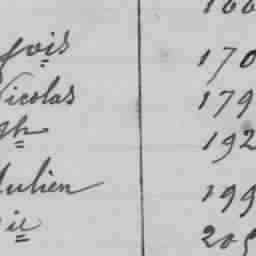 166
fois 170
Nicolas 179
ph 192
Julien 199
ie 205